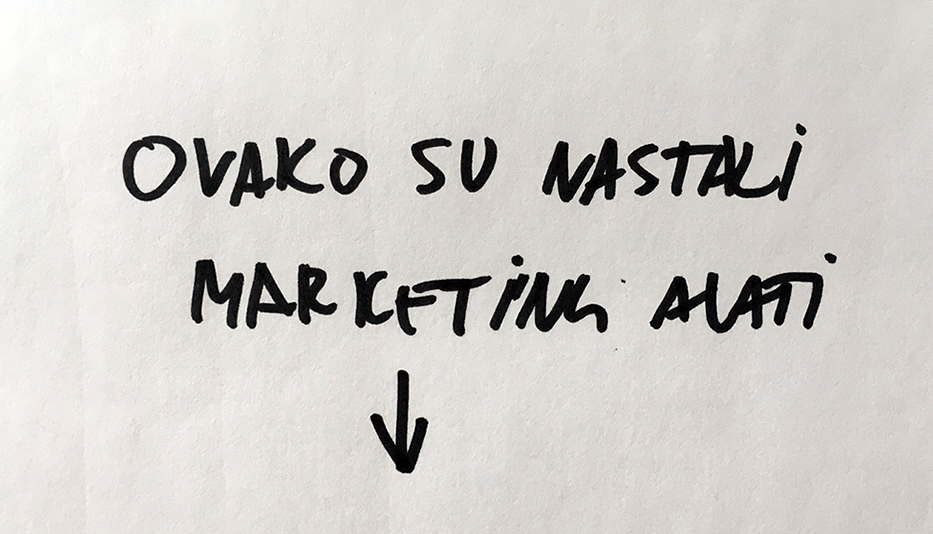 OVAKO SU NASTALI
MARKETING ALATI